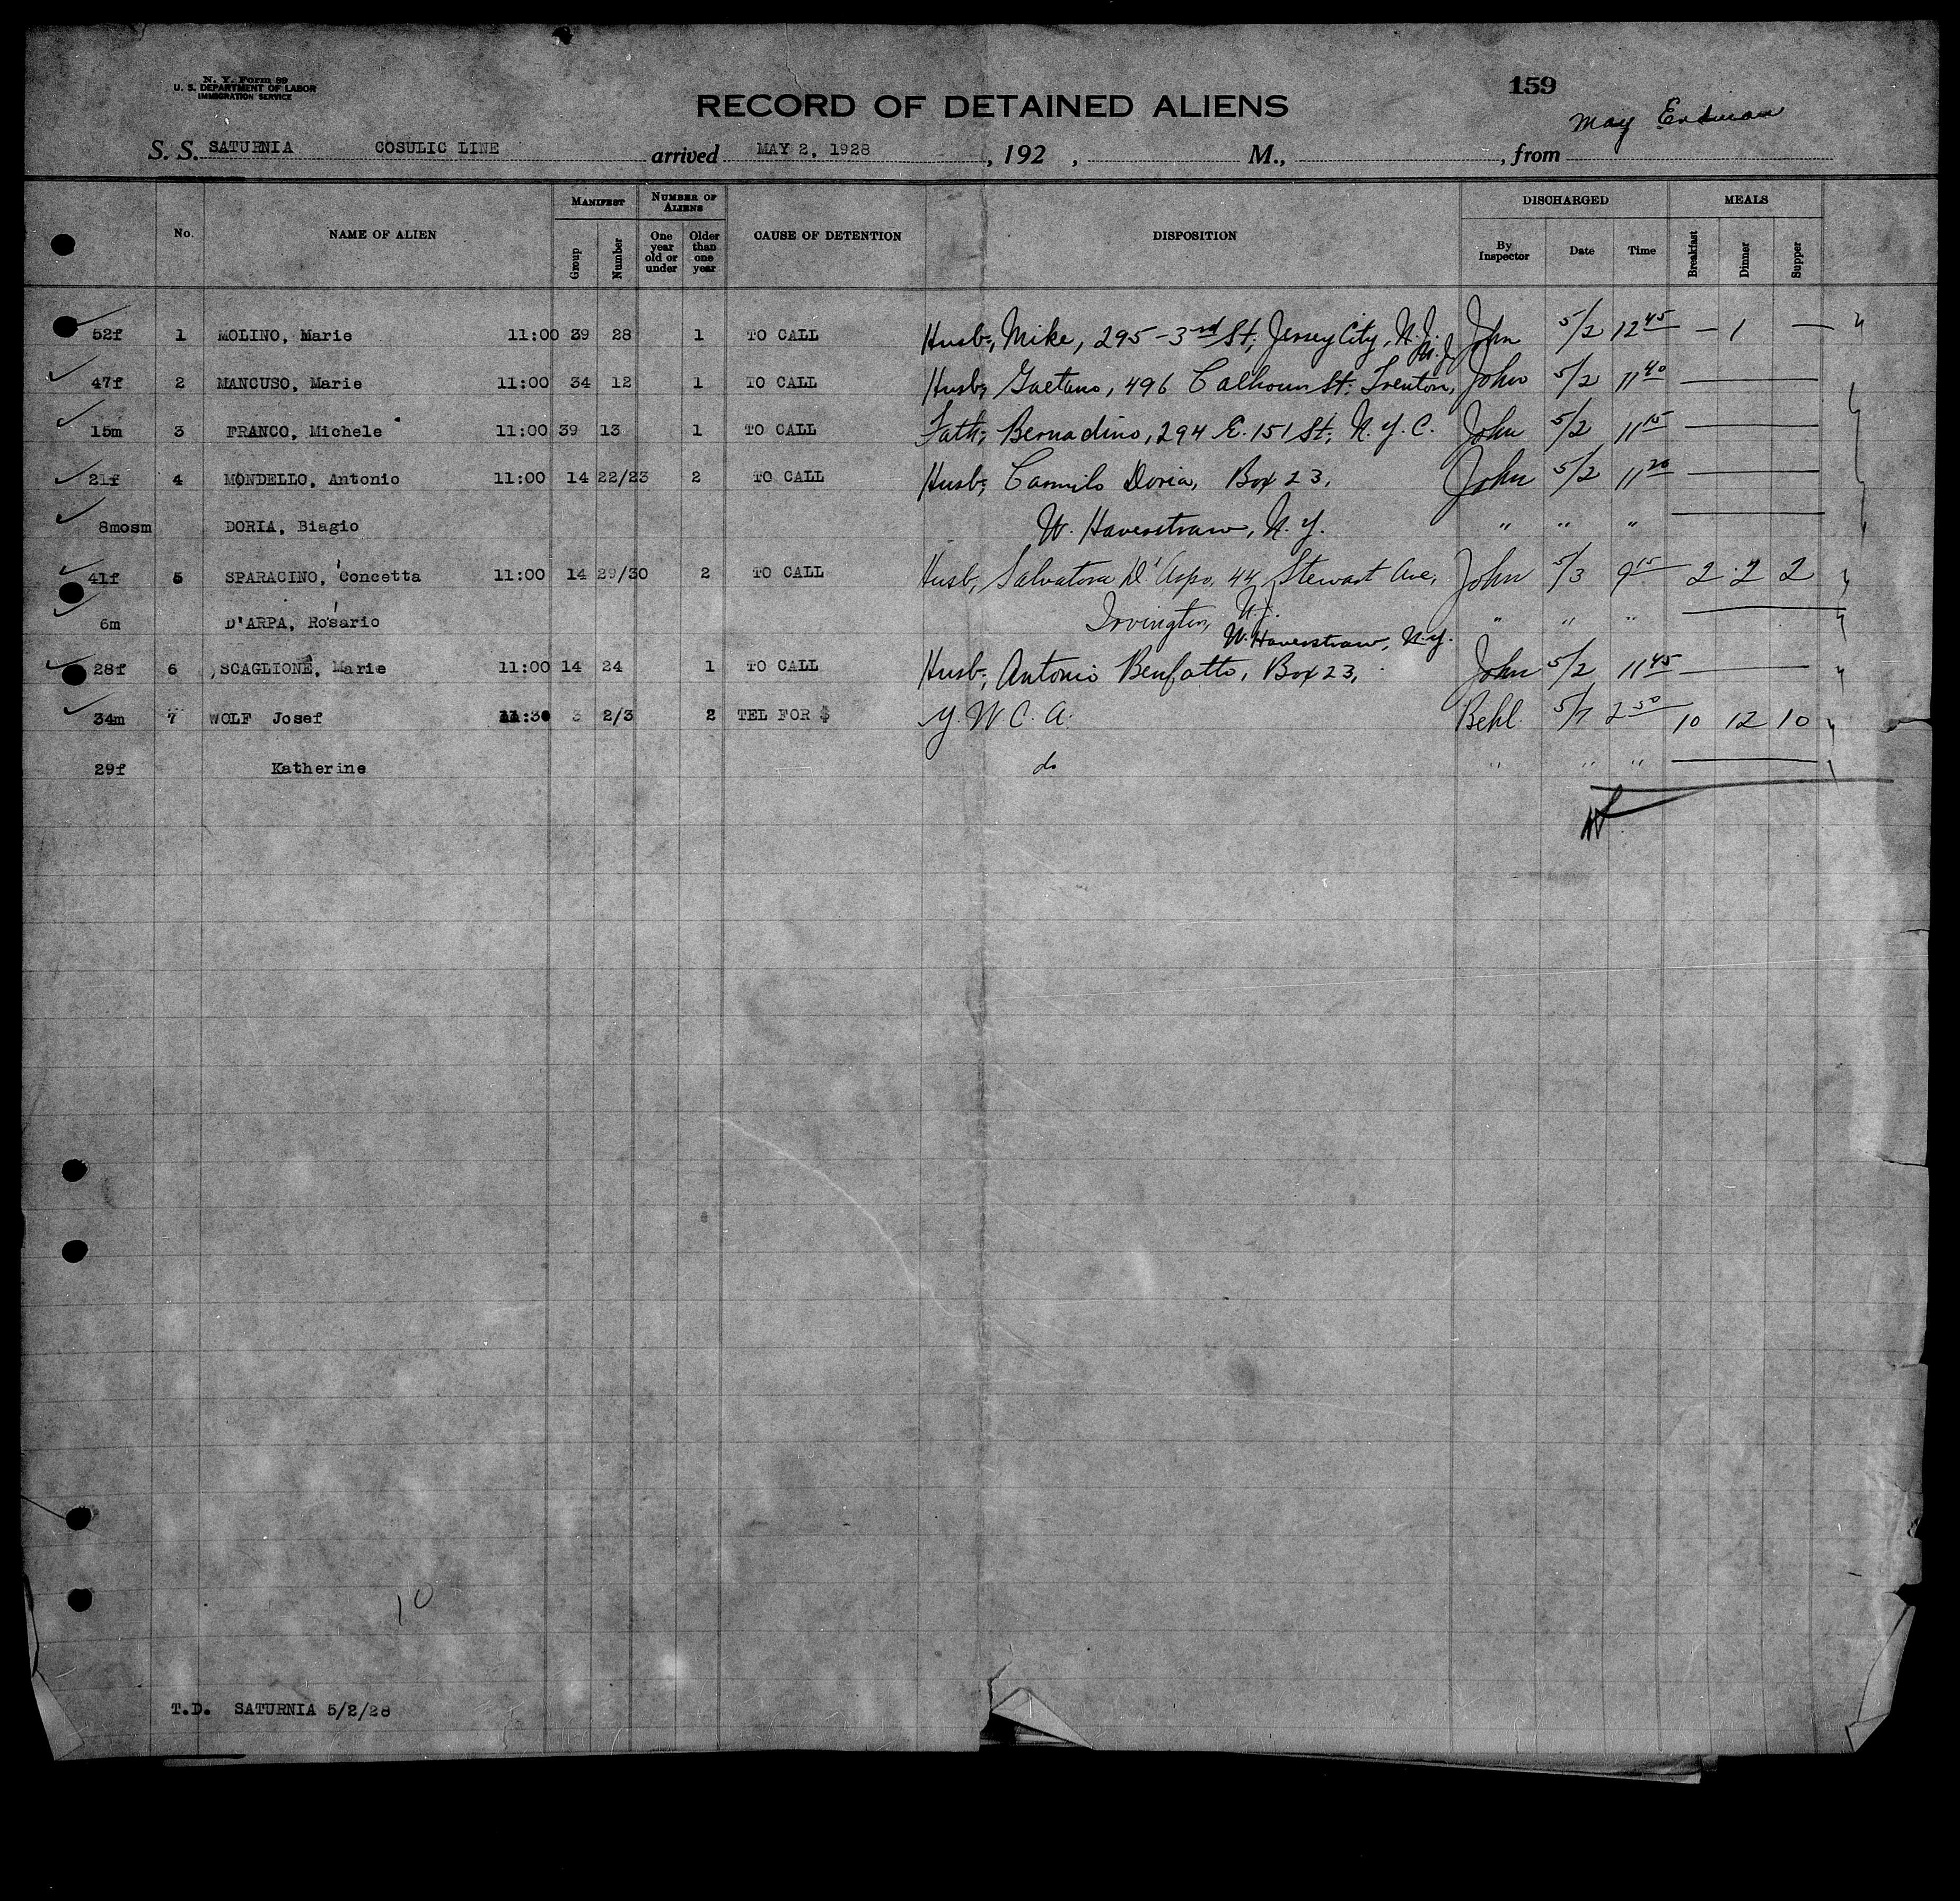 N. Y. Form 89
U. S. DEPARTMENT OF LABOR
IMMIGRATION SERVICE
159
RECORD OF DETAINED ALIENS
May Erdman
S. S. SATURNIA COSULIC LINE arrived MAY 2, 1928, 192 , M., , from
No. NAME OF ALIEN MANIFEST NUMBER OF ALIENS CAUSE OF DETENTION DISPOSITION DISCHARGED MEALS
Group Number One year old or under Older than one year By Inspector Date Time Breakfast Dinner Supper
52f 1 MOLINO, Marie 11:00 39 28 1 TO CALL Husb, Mike, 295-3rd St, Jersey City, N.J. John 5/2 12 45 — 1 —
N.J.
47f 2 MANCUSO, Marie 11:00 34 12 1 TO CALL Husb, Gaetano, 496 Calhoun St. Trenton, John 5/2 11 40
15m 3 FRANCO, Michele 11:00 39 13 1 TO CALL Fath, Bernadino, 294 E. 151 St, N.Y.C. John 5/2 11 15
21f 4 MONDELLO, Antonio 11:00 14 22/23 2 TO CALL Husb, Carmilo Doria, Box 23, John 5/2 11 20
8mosm DORIA, Biagio W. Haverstraw, N.Y. " " "
41f 5 SPARACINO, Concetta 11:00 14 29/30 2 TO CALL Husb, Salvatora 44 Stewart Ave, John 5/3 9 15 2 2 2
6m D'ARPA, Rosario Irvington, N.J. " " "
W. Haverstraw, N.Y.
28f 6 SCAGLIONE, Marie 11:00 14 24 1 TO CALL Husb, Antonio Benfatto, Box 23, John 5/2 11 45
34m 7 WOLF Josef 11:30 3 2/3 2 TEL FOR $ Y.W.C.A. Behl. 5/7 2 50 10 12 10
29f Katherine do " " "
10
T.D. SATURNIA 5/2/28